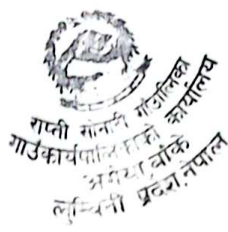 राप्ती सोनारी गाउँपालिका
गाउँकार्यपालिकाको कार्यालय
अगैया, बाँके
लुम्बिनी प्रदेश, नेपाल